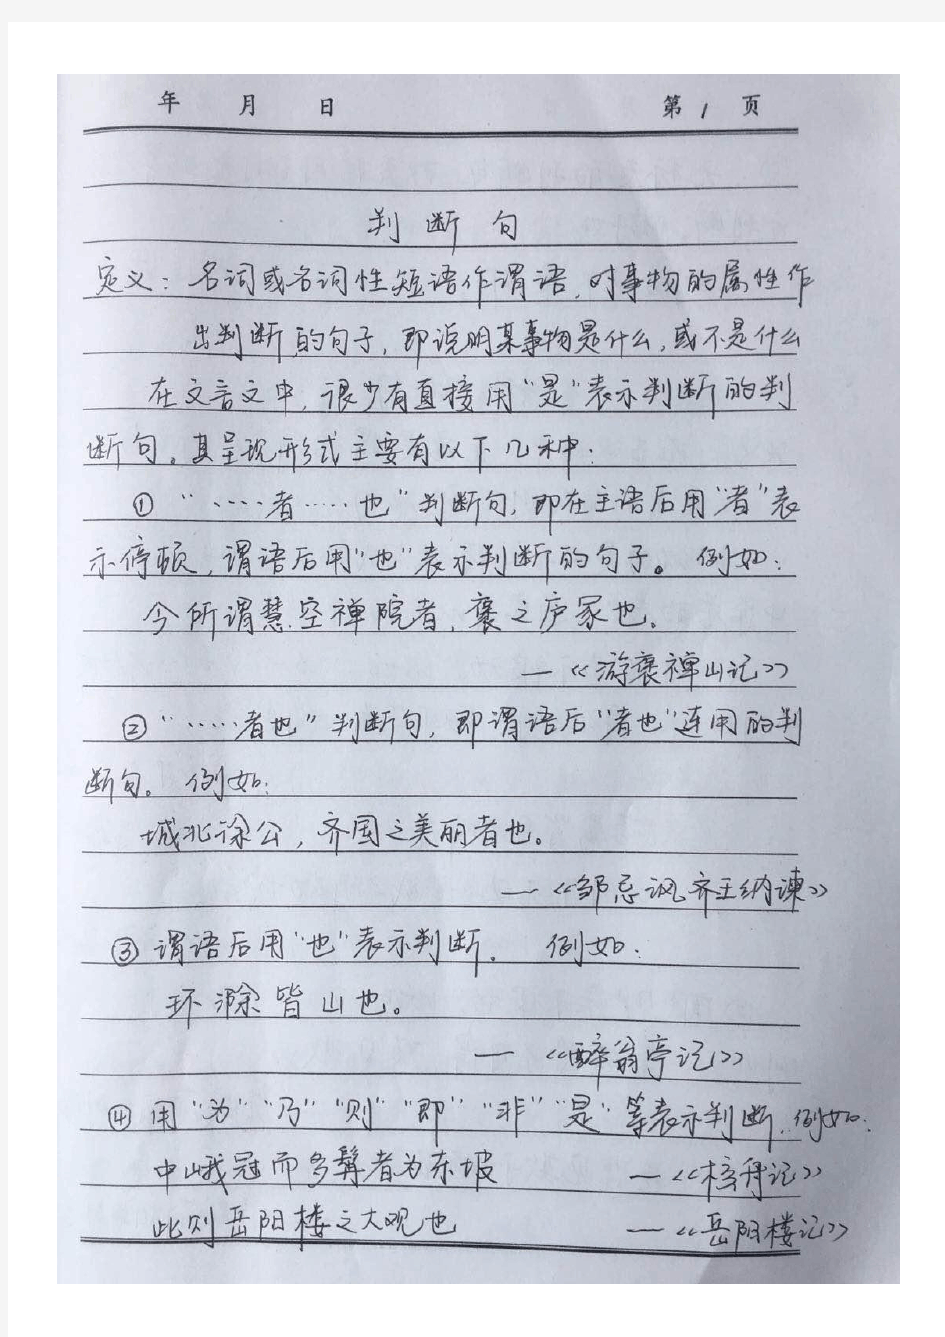 年 月 日 第 1 页
判断句
定义：名词或名词性短语作谓语，对事物的属性作
出判断的句子，即说明某事物是什么，或不是什么
在文言文中，很少有直接用“是”表示判断的判
断句。其呈现形式主要有以下几种：
① “……者……也”判断句，即在主语后用“者”表
示停顿，谓语后用“也”表示判断的句子。 例如：
今所谓慧空禅院者，褒之庐冢也。
—《游褒禅山记》
② “……者也”判断句，即谓语后“者也”连用的判
断句。 例如：
城北徐公，齐国之美丽者也。
—《邹忌讽齐王纳谏》
③ 谓语后用“也”表示判断。 例如：
环滁皆山也。
—《醉翁亭记》
④ 用“为”“乃”“则”“即”“非”“是”等表示判断.例如：
中峨冠而多髯者为东坡 —《核舟记》
此则岳阳楼之大观也 —《岳阳楼记》